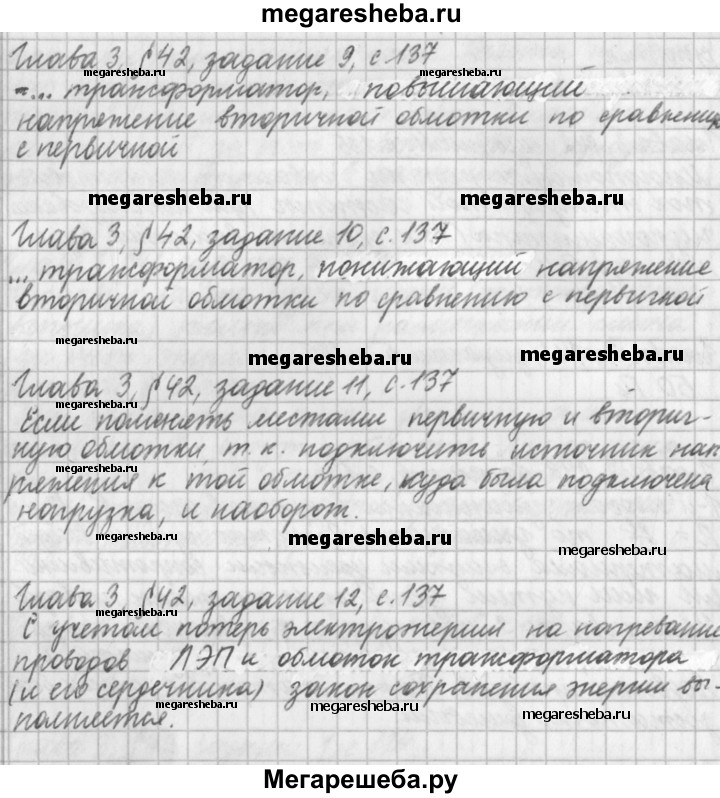 megaresheba.ru
Глава 3, §42, задание 9, с.137
megaresheba.ru
megaresheba.ru
=... трансформатор, повышающий
напряжение вторичной обмотки по сравнению
с первичной
megaresheba.ru
megaresheba.ru
Глава 3, §42, задание 10, с.137
... трансформатор, понижающий напряжение
вторичной обмотки по сравнению с первичной
megaresheba.ru
megaresheba.ru
megaresheba.ru
Глава 3, §42, задание 11, с.137
megaresheba.ru
Если поменять местами первичную и вторич-
ную обмотки, т.к. подключить источник нап
megaresheba.ru
ряжения к той обмотке, куда была подключена
нагрузка, и наоборот.
megaresheba.ru
megaresheba.ru
Глава 3, §42, задание 12, с.137
С учетом потерь электроэнергии на нагревание
проводов ЛЭП и обмоток трансформатора
(и его сердечника) закон сохранения энергии вы-
полняется.
megaresheba.ru
megaresheba.ru
Мегарешеба.ру